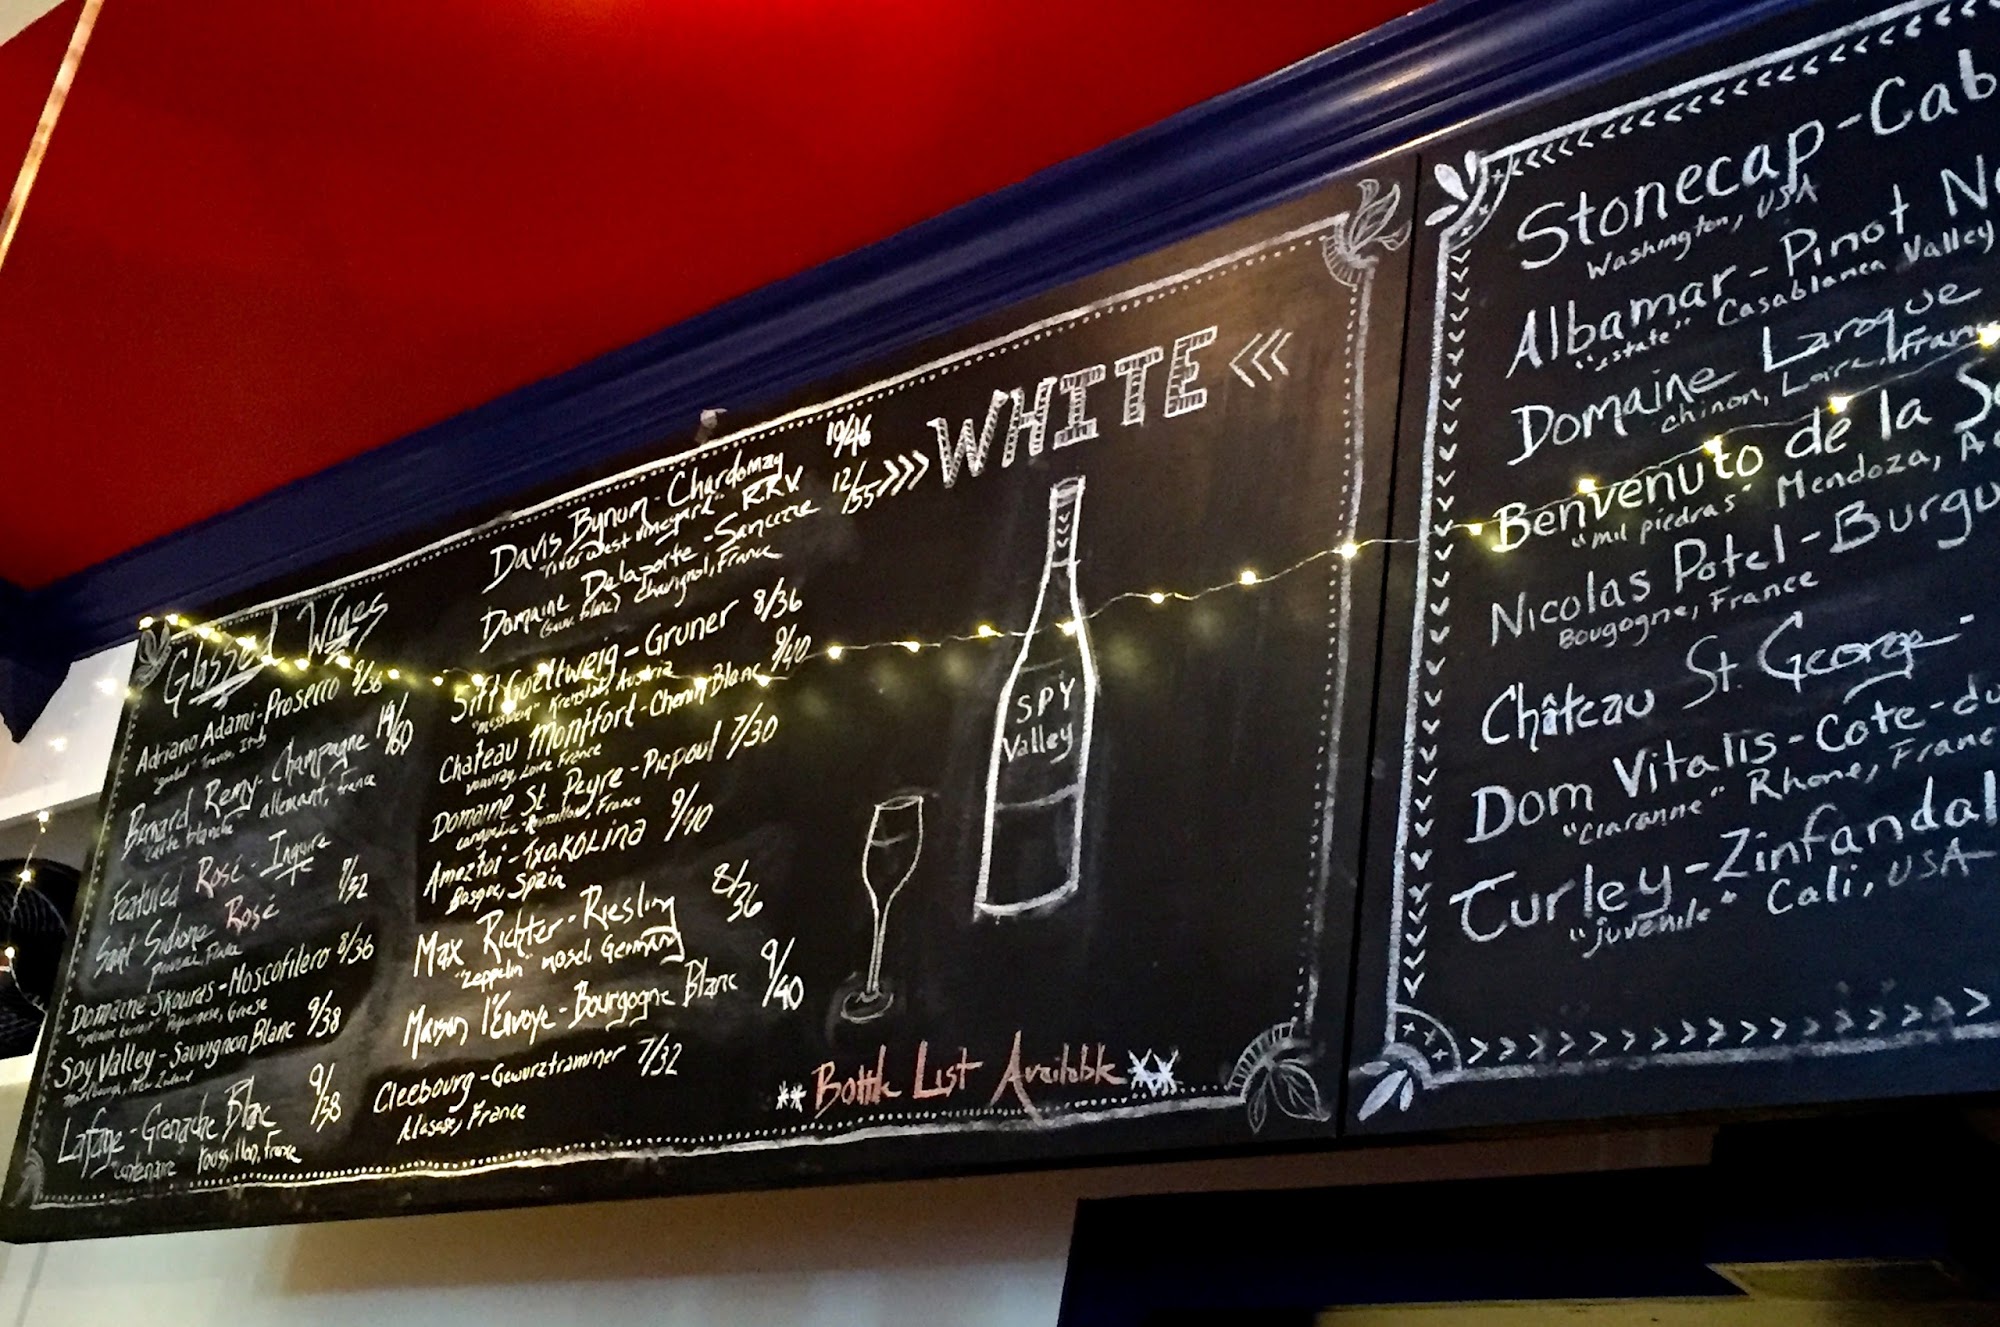 Glassed Wines
Adriano Adami - Prosecco 8/36
Treviso, Italy
Bernard Remy - Champagne 19/60
"carte blanche" allemant, france
Featured Rosé - Inquire
Saint Sidoine Rosé 7/32
Domaine Skouras - Moscofilero 8/36
Spy Valley - Sauvignon Blanc 9/38
Marlborough, New Zealand
Lafage - Grenache Blanc 9/38
centenaire roussillon, France
Davis Bynum - Chardonnay 10/46
"river west vineyard" R.R.V.
Domaine Delaporte - Sancerre 12/55
(Sauv blanc) Chavignol, France
Gruner 8/36
Kremstal, Austria
Chateau Montfort - Chenin Blanc 9/40
vouvray, Loire France
Domaine St. Peyre - Picpoul 7/30
Ameztoi - Txakolina 9/40
Basque, Spain
Max Richter - Riesling 8/36
"Zeppelin" mosel, Germany
Maison l'Envoye - Bourgogne Blanc 9/40
Cleebourg - Gewurztraminer 7/32
Alasase, France
>>> WHITE <<
SPY
Valley
** Bottle List Available **
Stonecap - Cab
Washington, USA
Albamar - Pinot No
"estate" Casablanca Valley
Domaine Laroque
Chinon, Loire, France
Benvenuto de la Se
"mil piedras" Mendoza, A
Nicolas Potel - Burgu
Bougogne, France
Château St. George
Dom Vitalis - Cote-du
"Claranne" Rhone, Franc
Turley - Zinfandal
"juvenile" Cali, USA